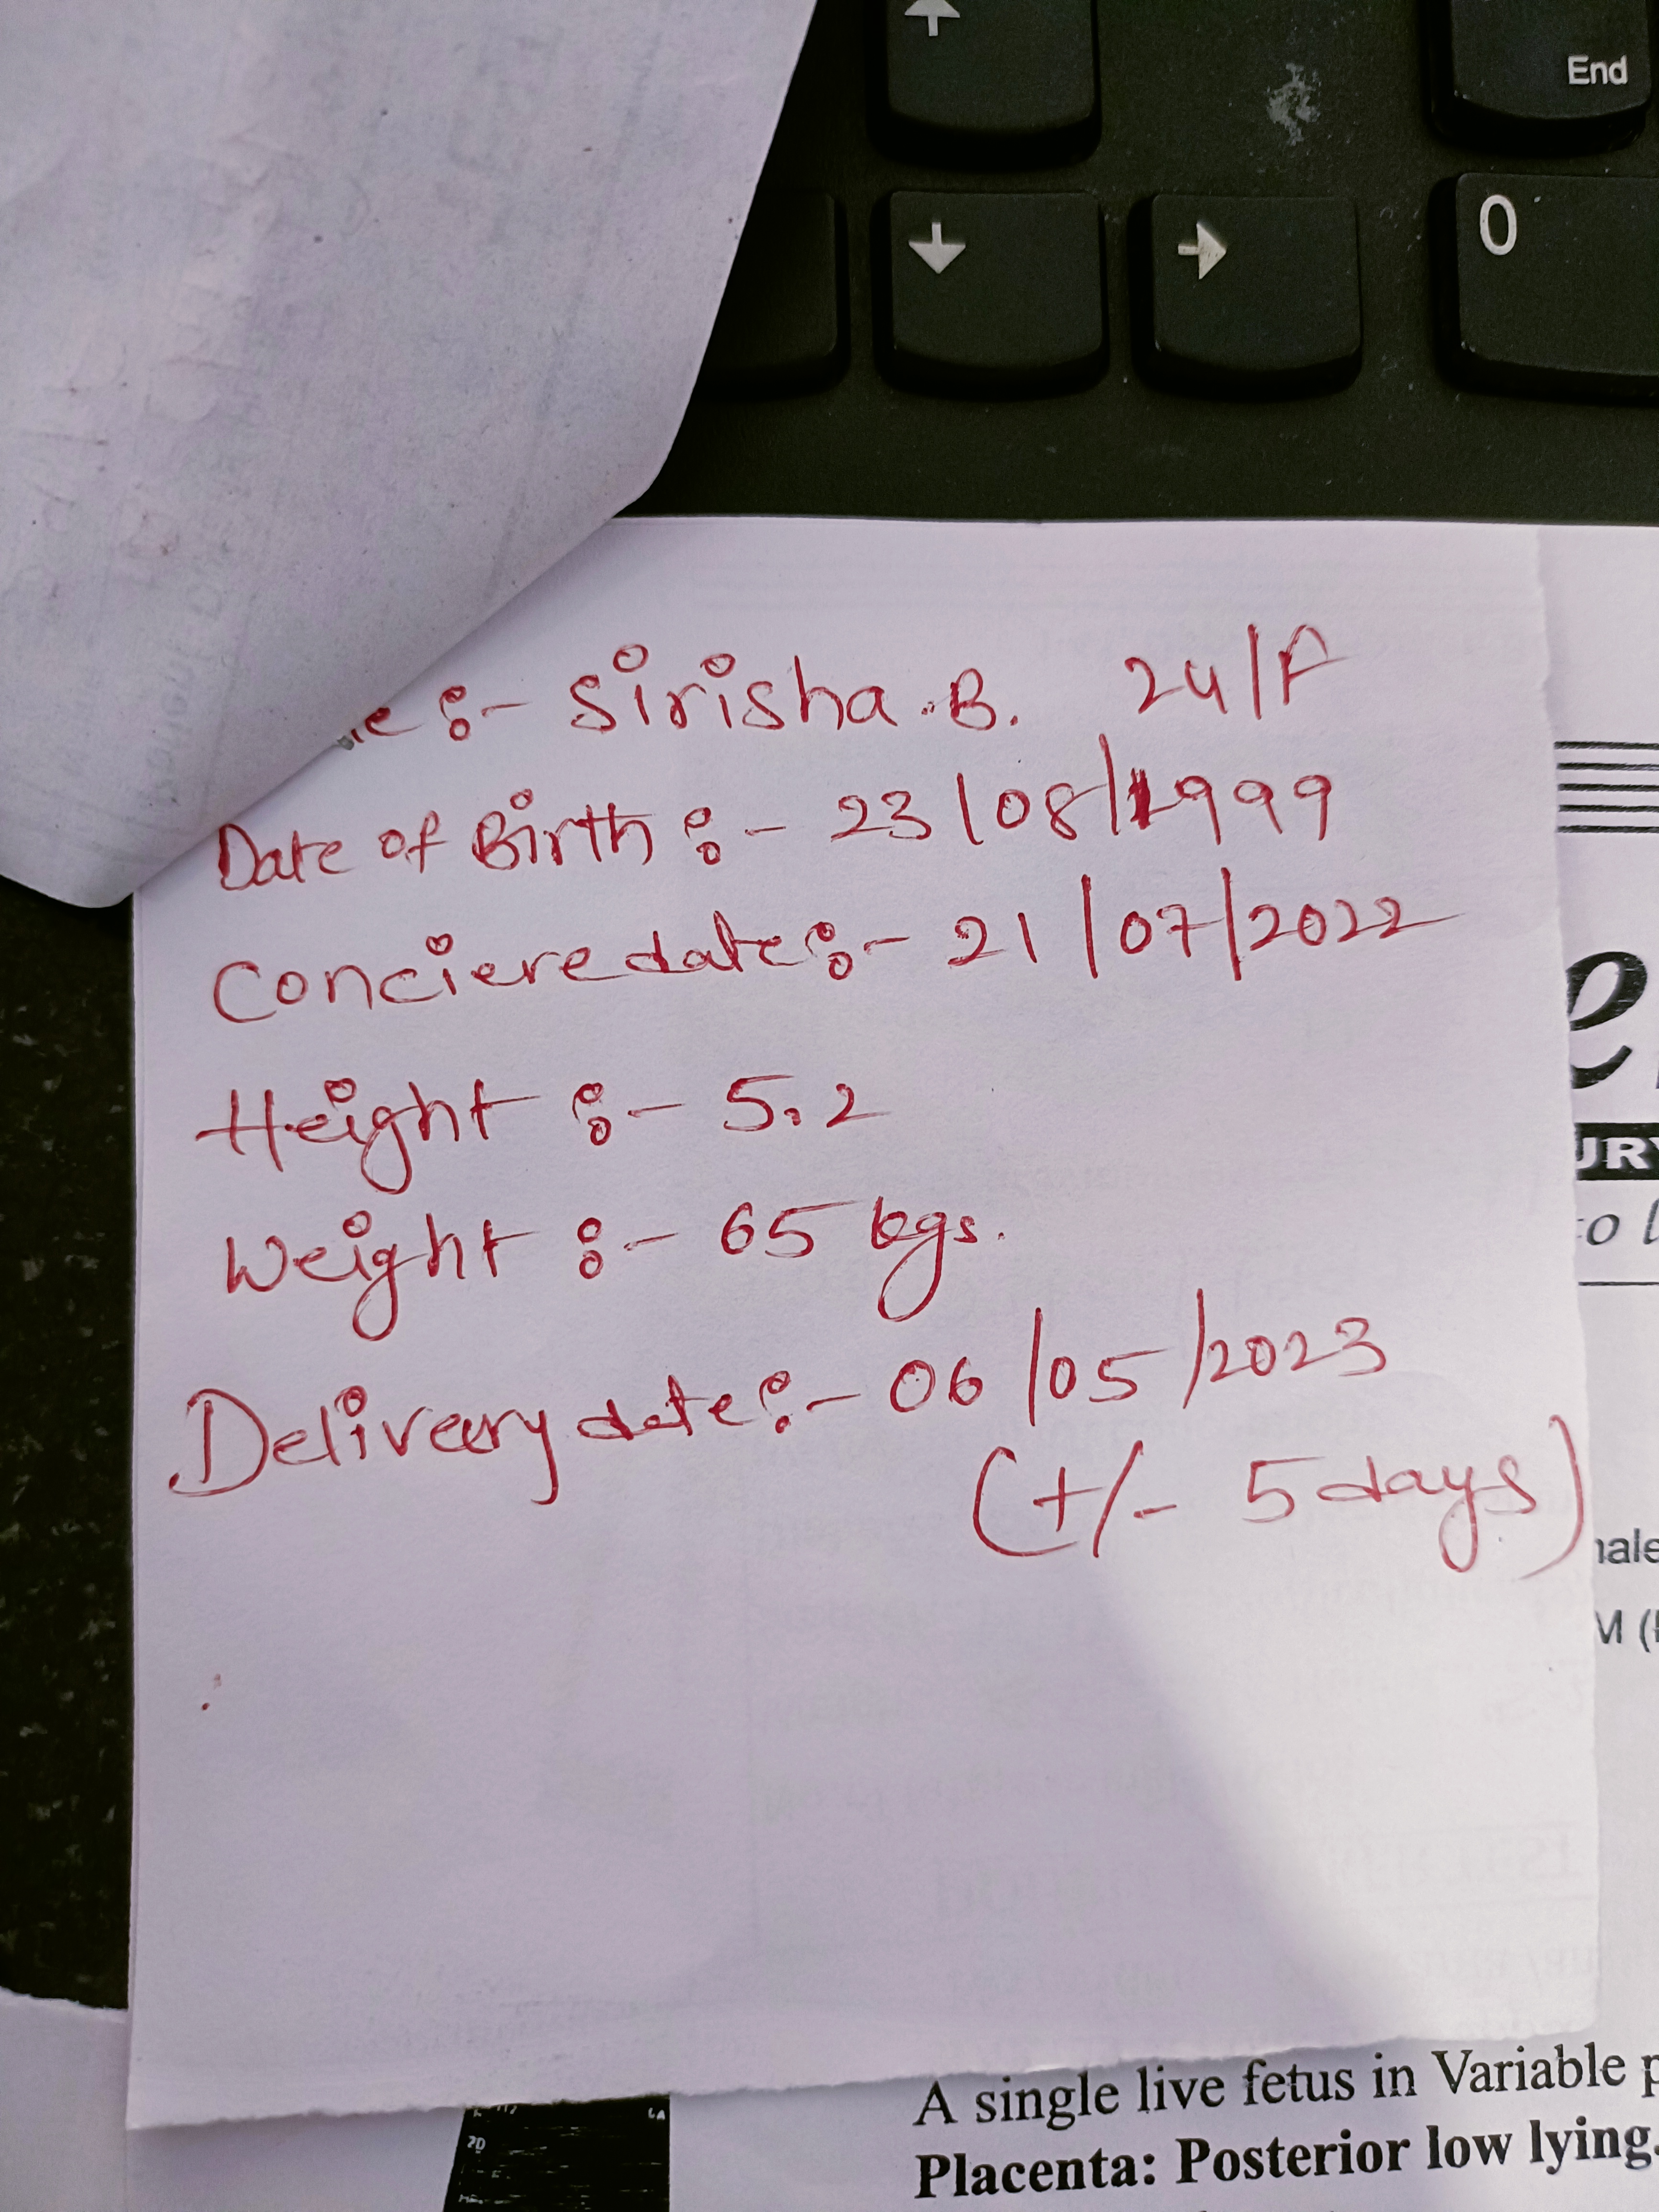 End
0
:- Sirisha.B. 24/F
Date of Birth :- 23/08/1999
Conciere date :- 21/07/2022
Height :- 5.2
Weight :- 65 kgs.
Deliveery date :- 06/05/2023
(+/- 5 days)
A single live fetus in Variable
Placenta: Posterior low lying.